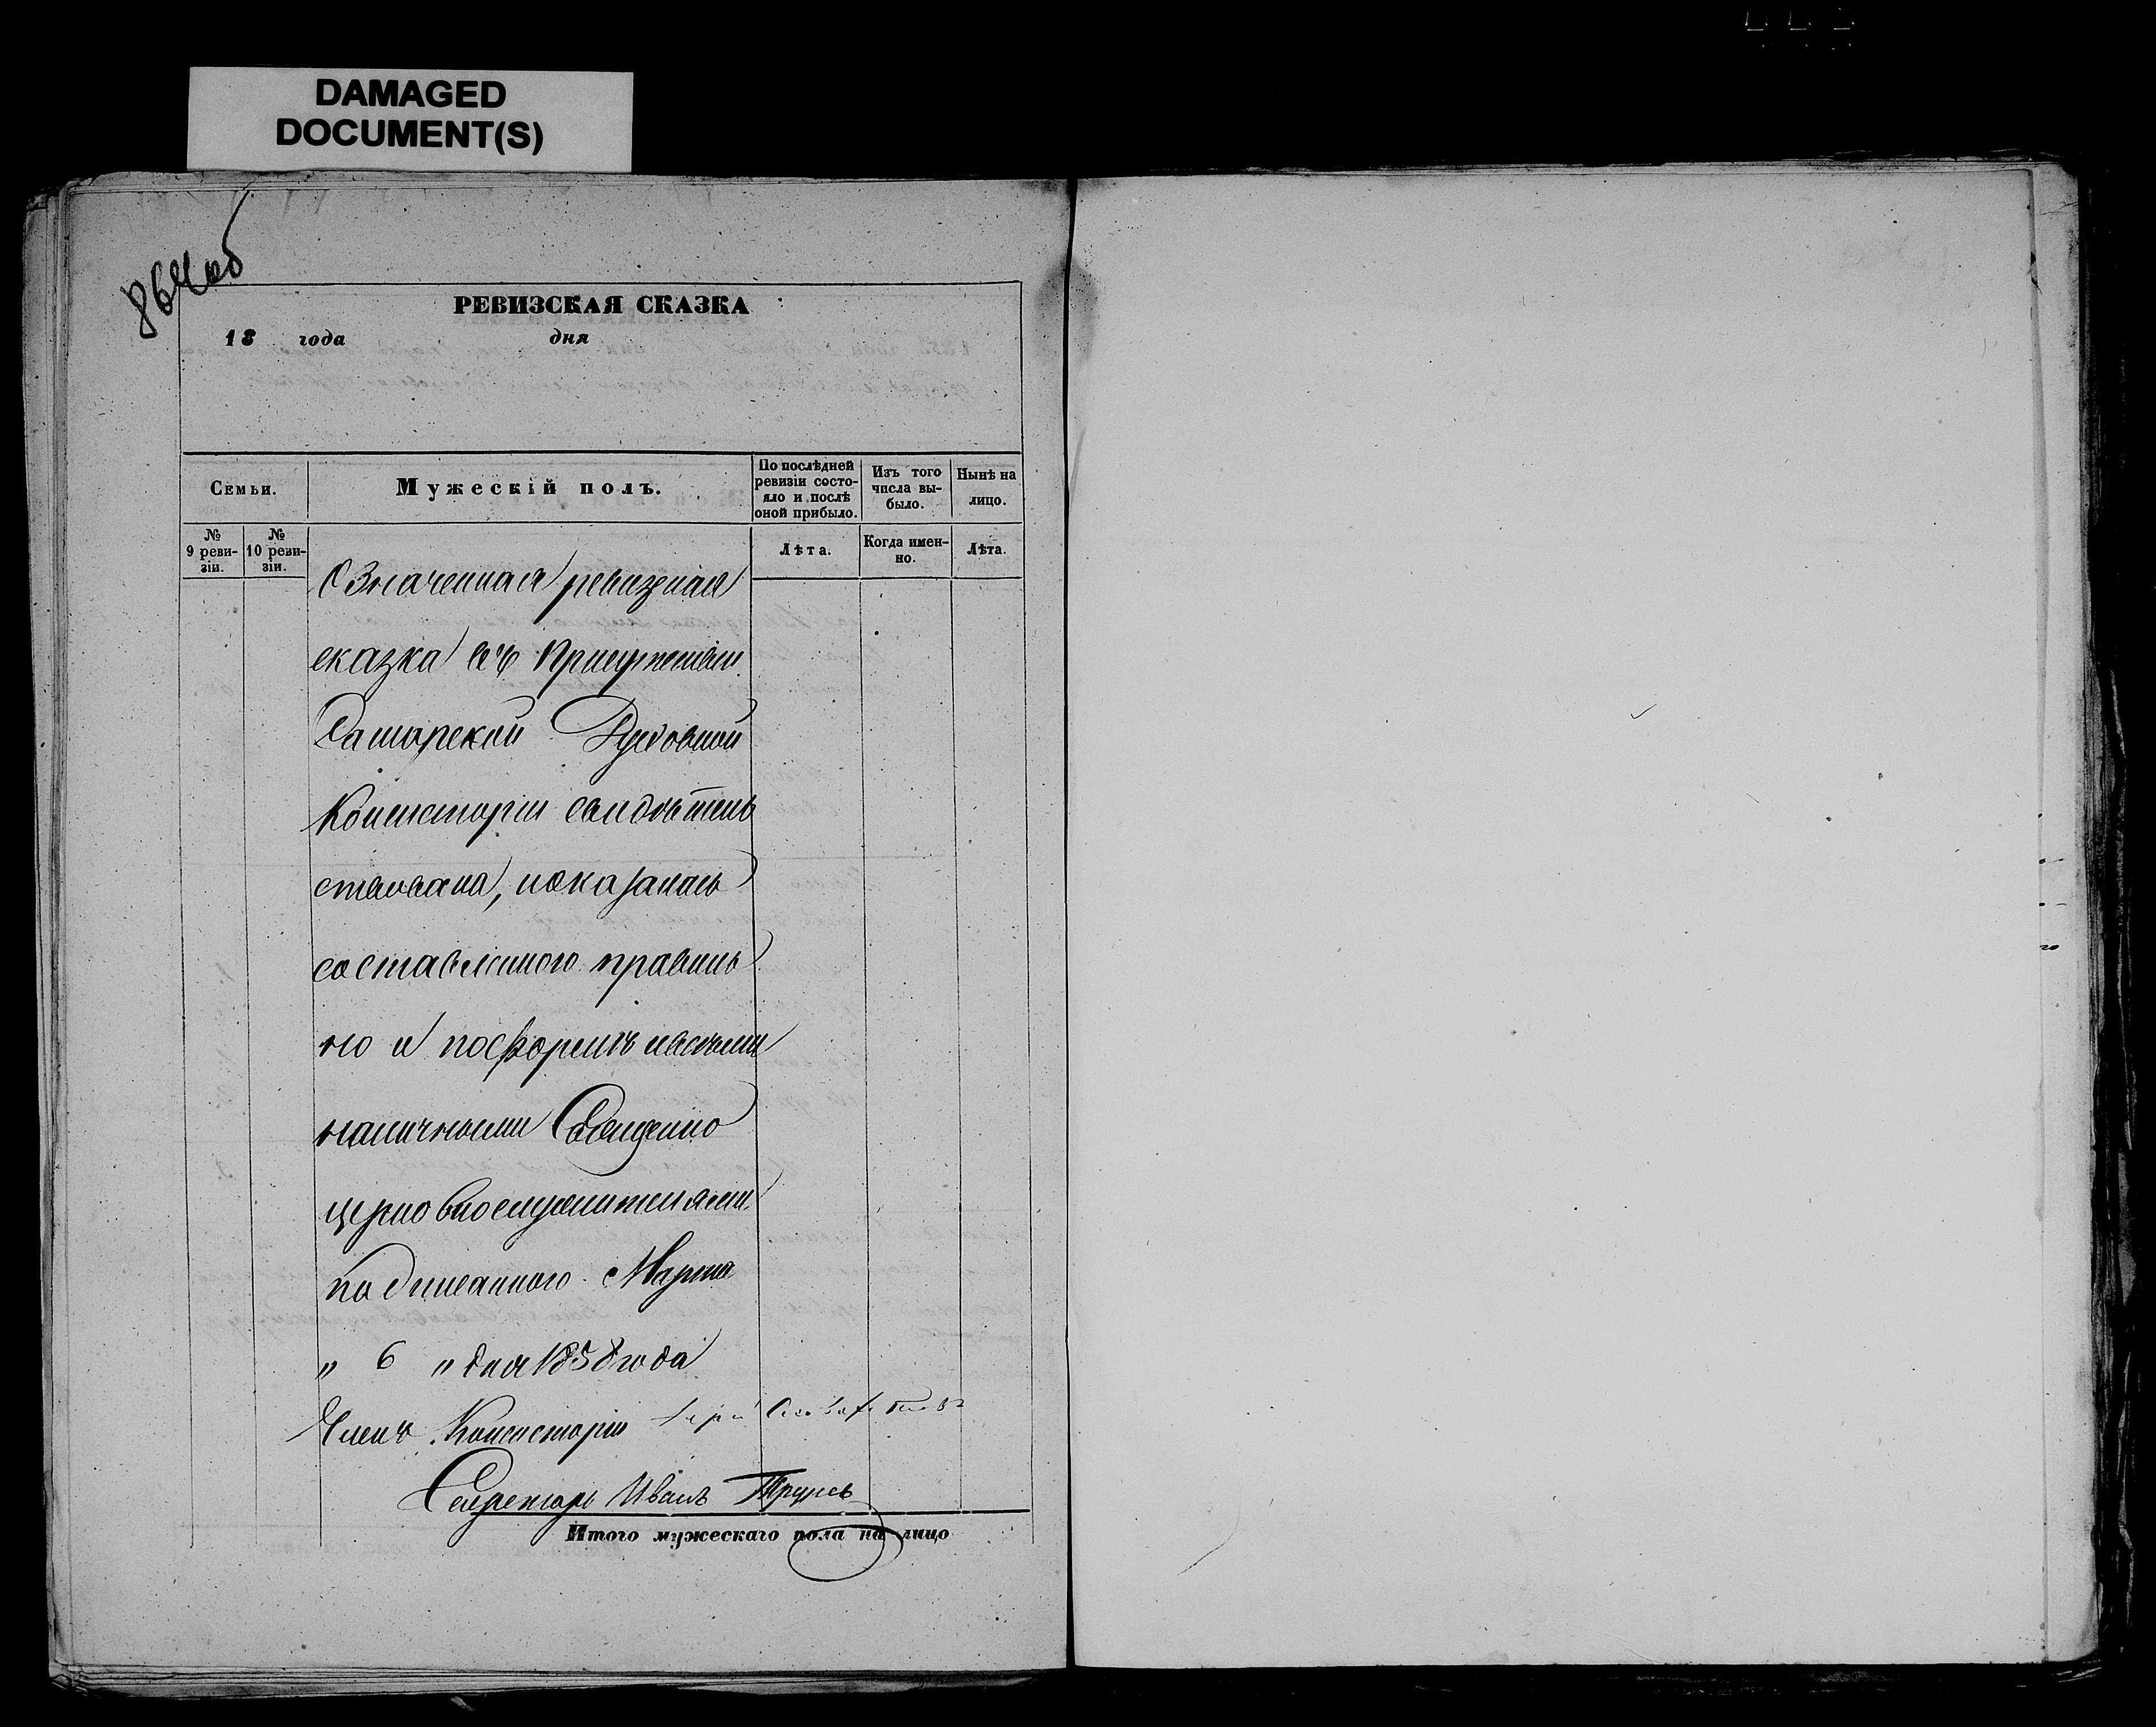 DAMAGED
DOCUMENT(S)
864об
РЕВИЗСКАЯ СКАЗКА
18 года дня
Семьи.
Мужескій полъ.
По послѣдней ревизіи состо-
яло и послѣ
оной прибыло.
Изъ того
числа вы-
было.
Нынѣ на
лицо.
№
9 реви-
зіи.
№
10 реви-
зіи.
Лѣта.
Когда имен-
но.
Лѣта.
Означенная ревизная
сказка въ присутствіи
Самарской Духовной
Консисторіи свидѣтель
ствована, показалась
составленного правиль
но и по формѣ и всѣми
наличными Священно
церковнослужителями
подписанного. Марта
„ 6 „ дня 1858 года
Членъ Консисторіи
Секретарь Иванъ
Итого мужескаго пола на лицо